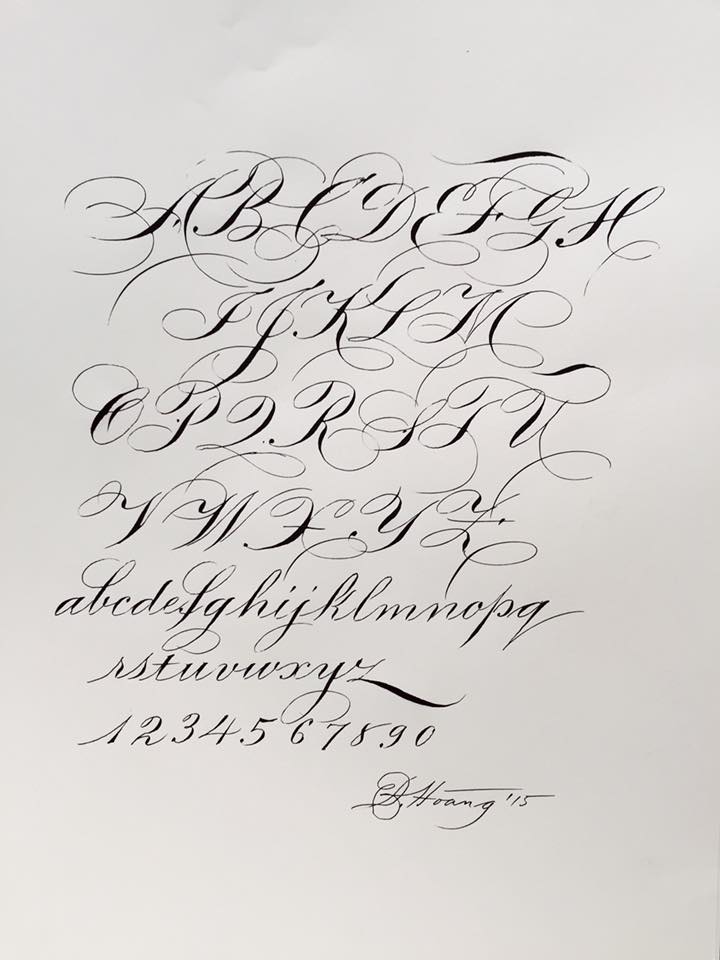 ABCDEFGH
IJKLM
OPQRSTU
VWXYZ
abcdefghijklmnopq
rstuvwxyz
1234567890
D. Hoang '15